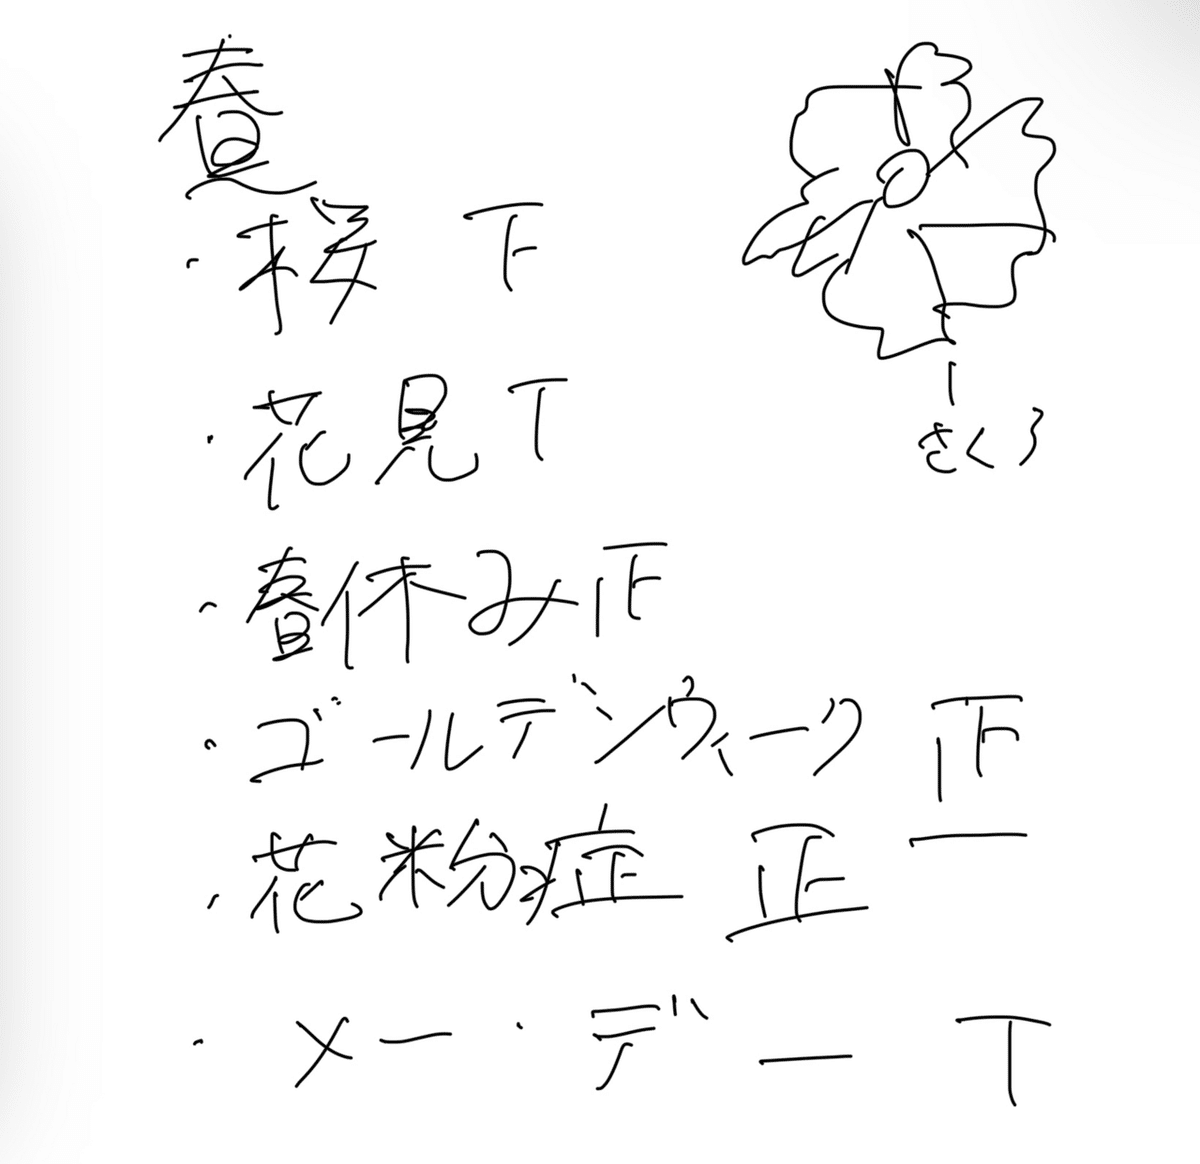 春
・桜 下
・花見 T
さくら
・春休み 正
・ゴールデンウィーク 正
・花粉症 正
・メー・デー T